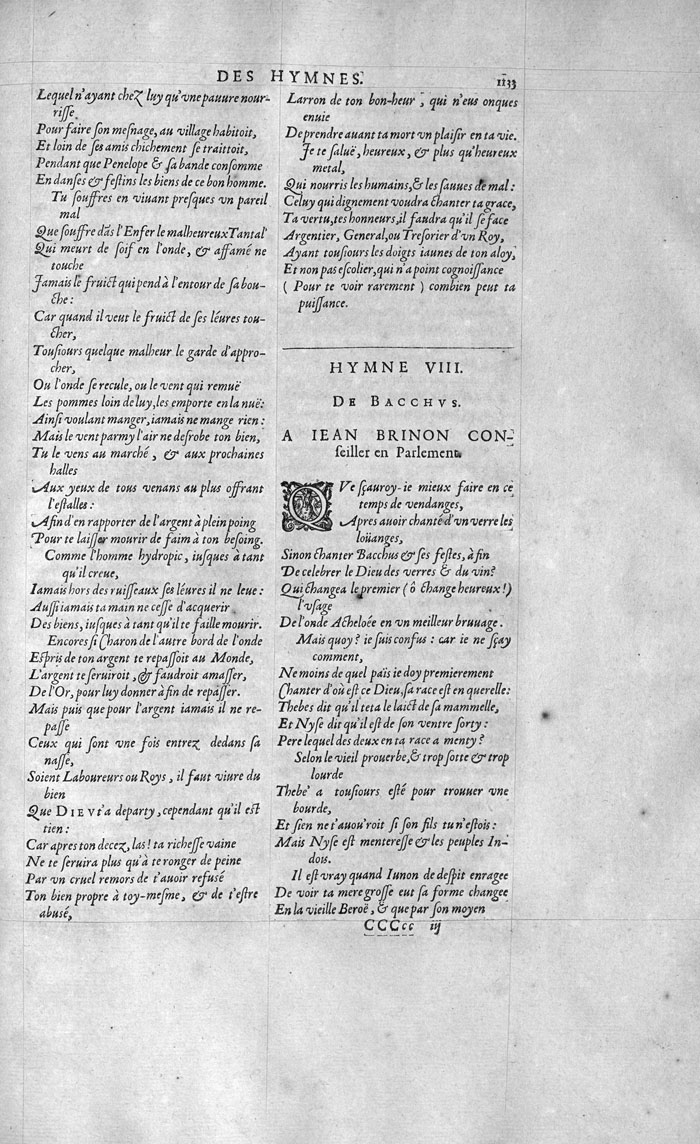 DES HYMNES.
1133
Lequel n'ayant chez luy qu'vne pauure nour-
risse.
Pour faire son mesnage, au village habitoit,
Et loin de ses amis chichement se traittoit,
Pendant que Penelope & sa bande consomme
En danses & festins les biens de ce bon homme.
Tu souffres en viuant presques vn pareil
mal
Que souffre dãs l'Enfer le malheureux Tantal'
Qui meurt de soif en l'onde, & affamé ne
touche
Jamais le fruict qui pend à l'entour de sa bou-
che:
Car quand il veut le fruict de ses léures tou-
cher,
Tousiours quelque malheur le garde d'appro-
cher,
Ou l'onde se recule, ou le vent qui remuë
Les pommes loin de luy, les emporte en la nuë:
Ainsi voulant manger, iamais ne mange rien:
Mais le vent parmy l'air ne desrobe ton bien,
Tu le vens au marché, & aux prochaines
halles
Aux yeux de tous venans au plus offrant
l'estalles:
Afin d'en rapporter de l'argent à plein poing
Pour te laisser mourir de faim à ton besoing.
Comme l'homme hydropic, iusques à tant
qu'il creue,
Iamais hors des ruisseaux ses léures il ne leue:
Aussi iamais ta main ne cesse d'acquerir
Des biens, iusques à tant qu'il te faille mourir.
Encores si Charon de l'autre bord de l'onde
Espris de ton argent te repassoit au Monde,
L'argent te seruiroit, & faudroit amasser,
De l'Or, pour luy donner à fin de repasser.
Mais puis que pour l'argent iamais il ne re-
passe
Ceux qui sont vne fois entrez dedans sa
nasse,
Soient Laboureurs ou Roys, il faut viure du
bien
Que DIEV t'a departy, cependant qu'il est
tien:
Car apres ton decez, las! ta richesse vaine
Ne te seruira plus qu'à te ronger de peine
Par vn cruel remors de t'auoir refusé
Ton bien propre à toy-mesme, & de t'estre
abusé,
Larron de ton bon-heur, qui n'eus onques
enuie
De prendre auant ta mort vn plaisir en ta vie.
Je te saluë, heureux, & plus qu'heureux
metal,
Qui nourris les humains, & les sauues de mal:
Celuy qui dignement voudra chanter ta grace,
Ta vertu, tes honneurs, il faudra qu'il se face
Argentier, General, ou Tresorier d'vn Roy,
Ayant tousiours les doigts iaunes de ton aloy,
Et non pas escolier, qui n'a point cognoissance
(Pour te voir rarement) combien peut ta
puissance.
HYMNE VIII.
DE BACCHVS.
A IEAN BRINON CON-
seiller en Parlement.
QVe sçauroy-ie mieux faire en ce
temps de vendanges,
Apres auoir chanté d'vn verre les
loüanges,
Sinon chanter Bacchus & ses festes, à fin
De celebrer le Dieu des verres & du vin?
Qui changea le premier (ô change heureux!)
l'vsage
De l'onde Acheloée en vn meilleur bruuage.
Mais quoy? ie suis confus: car ie ne sçay
comment,
Ne moins de quel païs ie doy premierement
Chanter d'où est ce Dieu, sa race est en querelle:
Thebes dit qu'il teta le laict de sa mammelle,
Et Nyse dit qu'il est de son ventre sorty:
Pere lequel des deux en ta race a menty?
Selon le vieil prouerbe, & trop sotte & trop
lourde
Thebe' a tousiours esté pour trouuer vne
bourde,
Et sien ne t'auou'roit si son fils tu n'estois:
Mais Nyse est menteresse & les peuples In-
dois.
Il est vray quand Iunon de despit enragee
De voir ta mere grosse eut sa forme changee
En la vieille Beroë, & que par son moyen
CCCcc iij